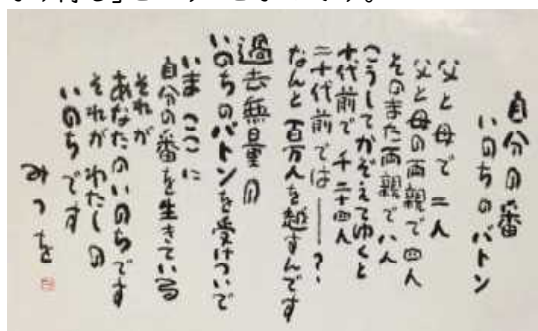 自分の番
いのちのバトン
父と母で二人
父と母の両親で四人
そのまた両親で八人
こうしてかぞえてゆくと
十代前で千二十四人
二十代前では――?
なんと百万人を越すんです
過去無量の
いのちのバトンを受けついで
いまここに
自分の番を生きている
それが
あなたのいのちです
それがわたしの
いのちです
みつを